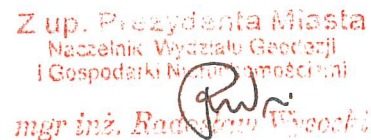 Z up. Prezydenta Miasta
Naczelnik Wydziału Geodezji
i Gospodarki Nieruchomościami
mgr inż. Radosław Wysocki